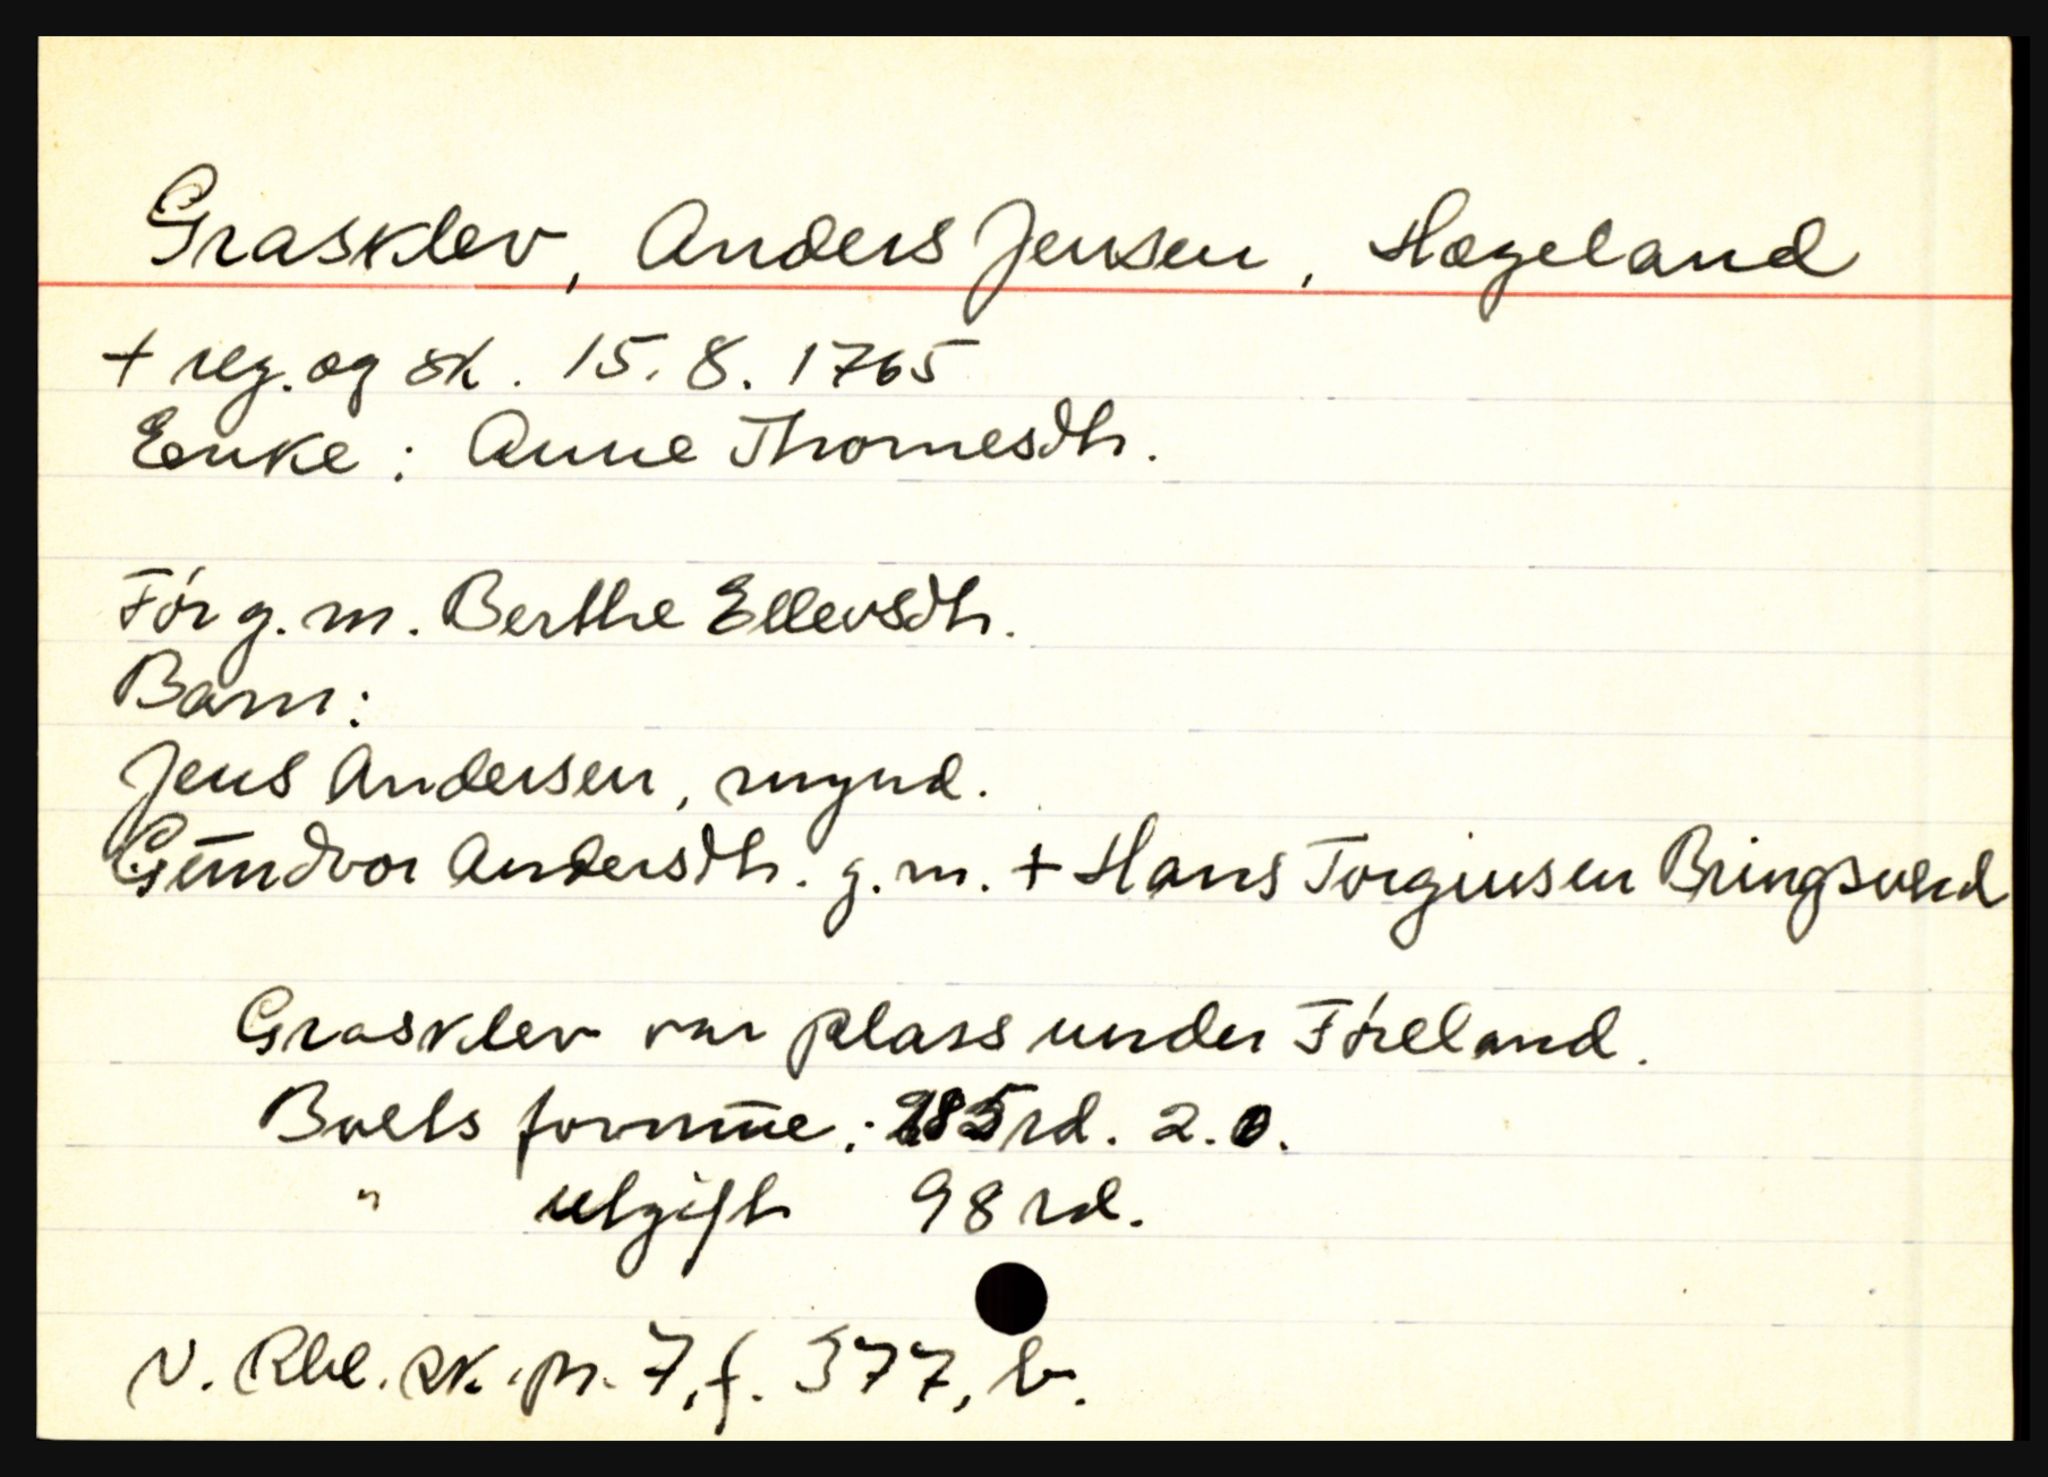 Grasklev, Anders Jensen, Hægeland
+ reg. og sk. 15.8.1765
Enke: Anne Thomesdtr.
Før g.m. Berthe Ellevsdtr.
Barn:
Jens Andersen, mynd.
Gundvor Andersdtr. g.m. + Hans Torgiusen Bringsverd
Grasklev var plass under Føreland.
Boets formue: 285 rd. 2.0.
" utgift 98 rd.
N. Rbl. sk.pr. 7, f. 377, b.